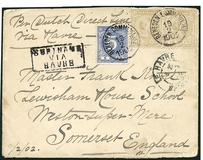 Per Dutch Direct Line
via Havre
SURINAME
VIA
HAVRE
Master Frank Stone
Lewisham House School
Weston-super-Mare
Somerset
England
/2/02.